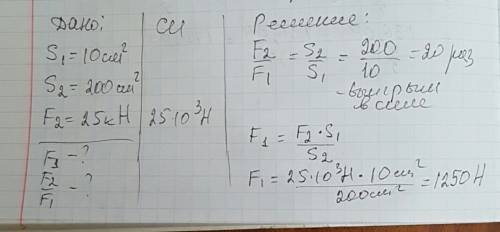 Дано:
S₁ = 10 см²
S₂ = 200 см²
F₂ = 25 кН
F₁ - ?
F₂/F₁ - ?
СИ
25·10³Н
Решение:
F₂/F₁ = S₂/S₁ = 200/10 = 20 раз
- выигрыш
в силе
F₁ = F₂·S₁/S₂
F₁ = 25·10³Н·10см²/200см² = 1250Н